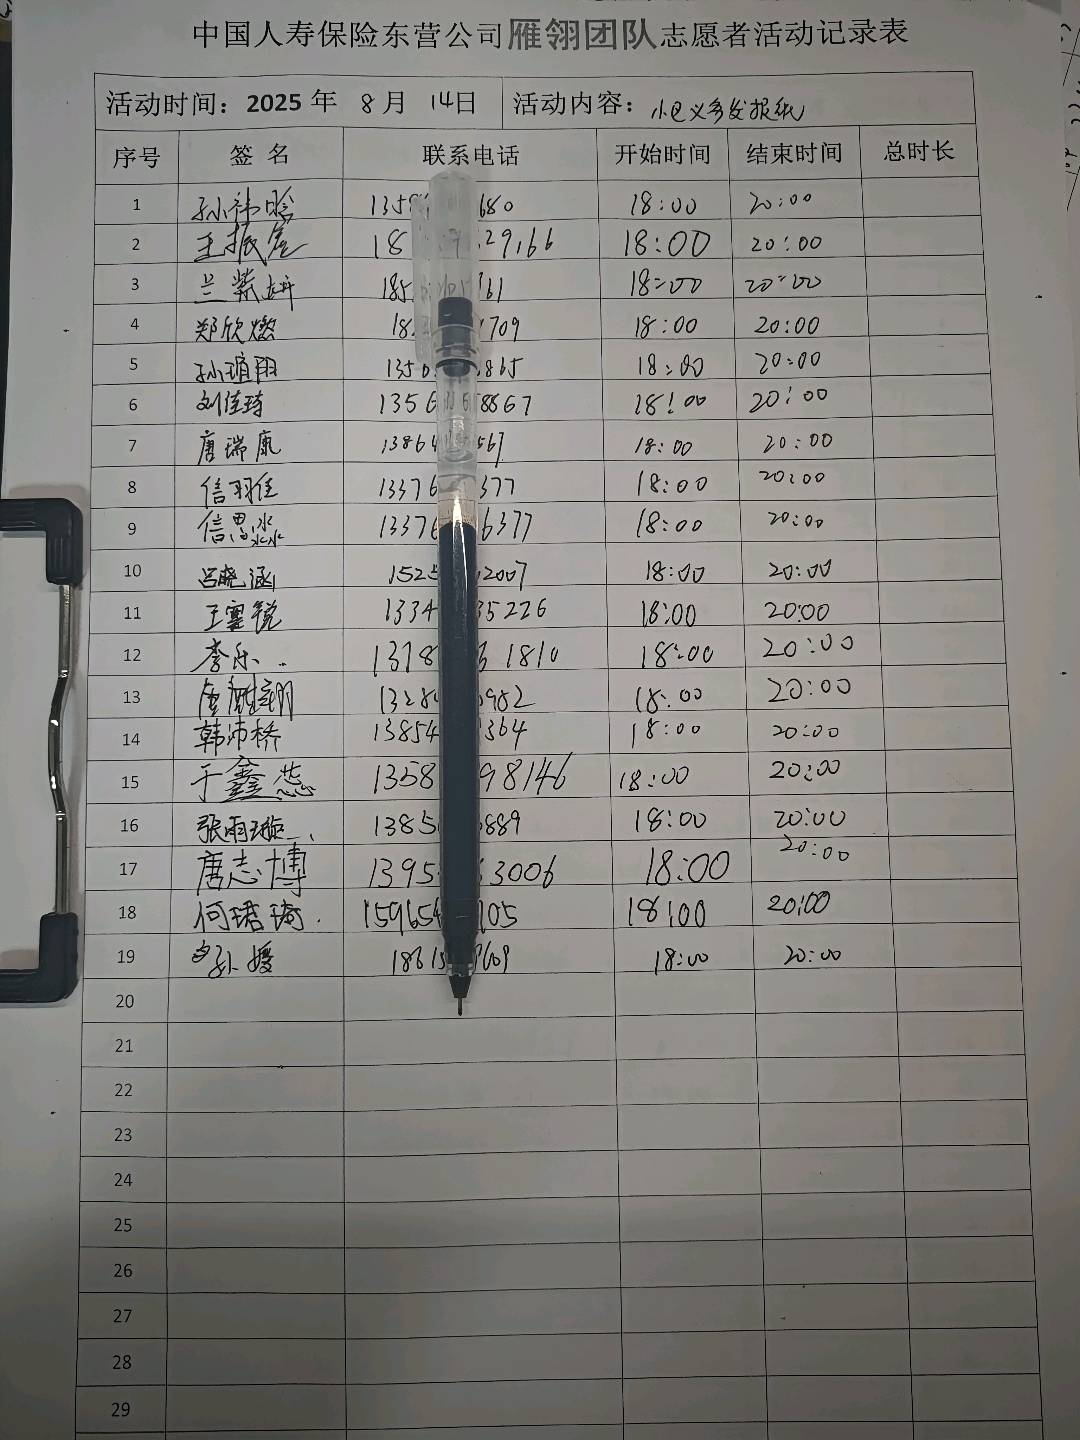 中国人寿保险东营公司雁翎团队志愿者活动记录表
活动时间：2025 年 8 月 14日 活动内容：小包义务发报纸
序号 签 名 联系电话 开始时间 结束时间 总时长
1 孙祎晗 1358 680 18:00 20:00
2 王振 18 29166 18:00 20:00
3 兰紫 185 161 18:00 20:00
4 郑欣燃 18 709 18:00 20:00
5 孙瑄翔 135 865 18:00 20:00
6 刘佳琦 1356 8867 18:00 20:00
7 唐瑞康 13864 567 18:00 20:00
8 信羽佳 13376 377 18:00 20:00
9 信思淼 13376 6377 18:00 20:00
10 吕晓涵 1525 2007 18:00 20:00
11 王 锐 1334 35226 18:00 20:00
12 李乐 1378 1810 18:00 20:00
13 1328 982 18:00 20:00
14 韩沛桥 13854 364 18:00 20:00
15 于鑫蕊 1358 98146 18:00 20:00
16 张雨璇 1385 889 18:00 20:00
17 唐志博 1395 3006 18:00 20:00
18 何珺琦 159654 705 18:00 20:00
19 孙媛 18615 609 18:00 20:00
20
21
22
23
24
25
26
27
28
29